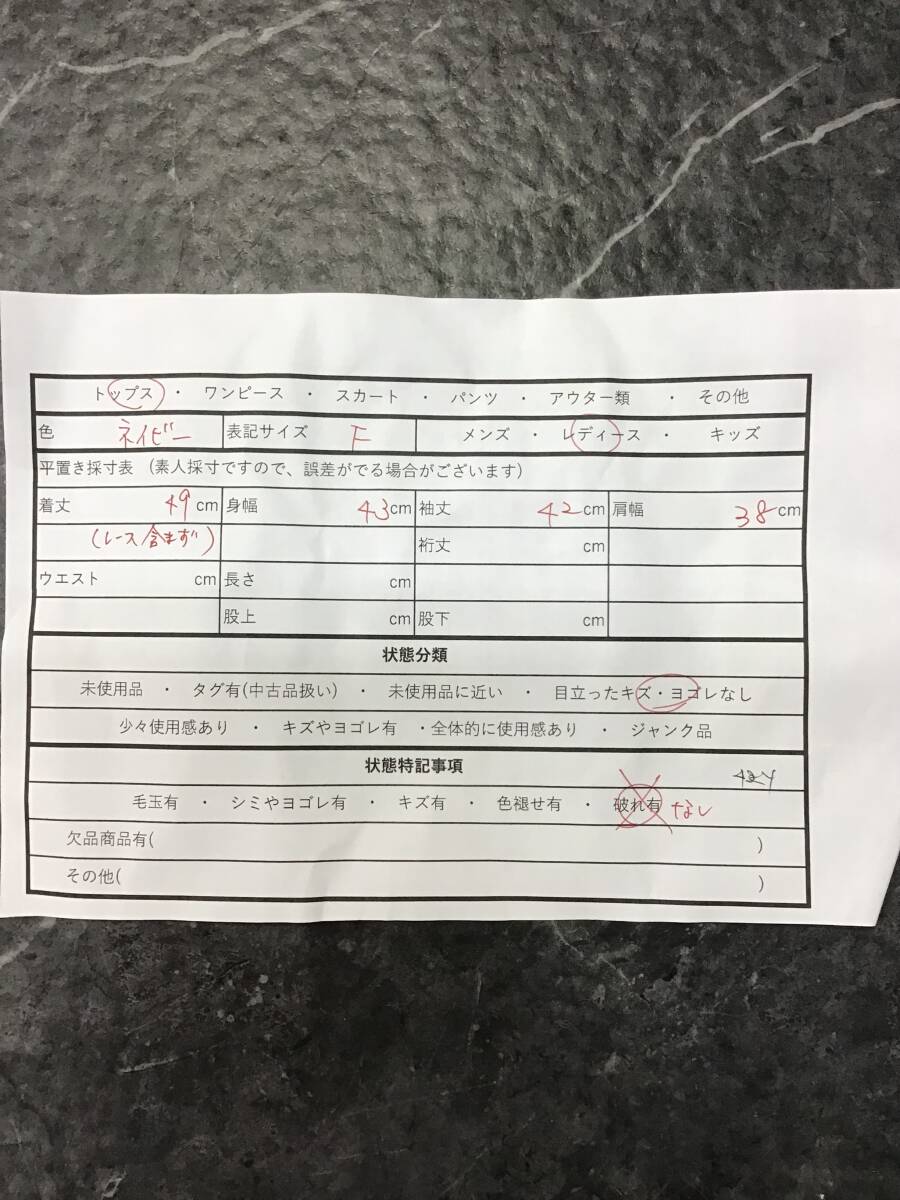 トップス ・ ワンピース ・ スカート ・ パンツ ・ アウター類 ・ その他
色 ネイビー 表記サイズ F メンズ ・ レディース ・ キッズ
平置き採寸表 (素人採寸ですので、誤差がでる場合がございます)
着丈 49 cm 身幅 43 cm 袖丈 42 cm 肩幅 38 cm
(レース含まず) 裄丈 cm
ウエスト cm 長さ cm
股上 cm 股下 cm
状態分類
未使用品 ・ タグ有(中古品扱い) ・ 未使用品に近い ・ 目立ったキズ・ヨゴレなし
少々使用感あり ・ キズやヨゴレ有 ・全体的に使用感あり ・ ジャンク品
状態特記事項
毛玉有 ・ シミやヨゴレ有 ・ キズ有 ・ 色褪せ有 ・ 破れ有 なし
欠品商品有( )
その他( )